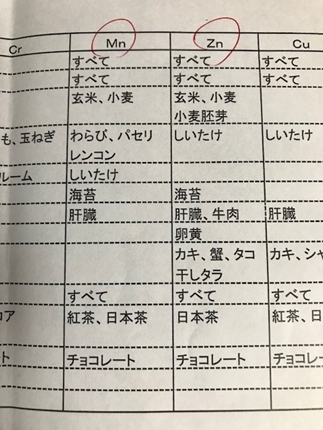 Cr Mn Zn Cu
すべて すべて すべて
すべて すべて すべて
玄米、小麦 玄米、小麦
小麦胚芽
も、玉ねぎ わらび、パセリ しいたけ しいたけ
レンコン
ルーム しいたけ
海苔 海苔
肝臓 肝臓、牛肉 肝臓
卵黄
カキ、蟹、タコ カキ、シャ
干しタラ
すべて すべて すべて
コア 紅茶、日本茶 日本茶 紅茶、日
ート チョコレート チョコレート チョコレー